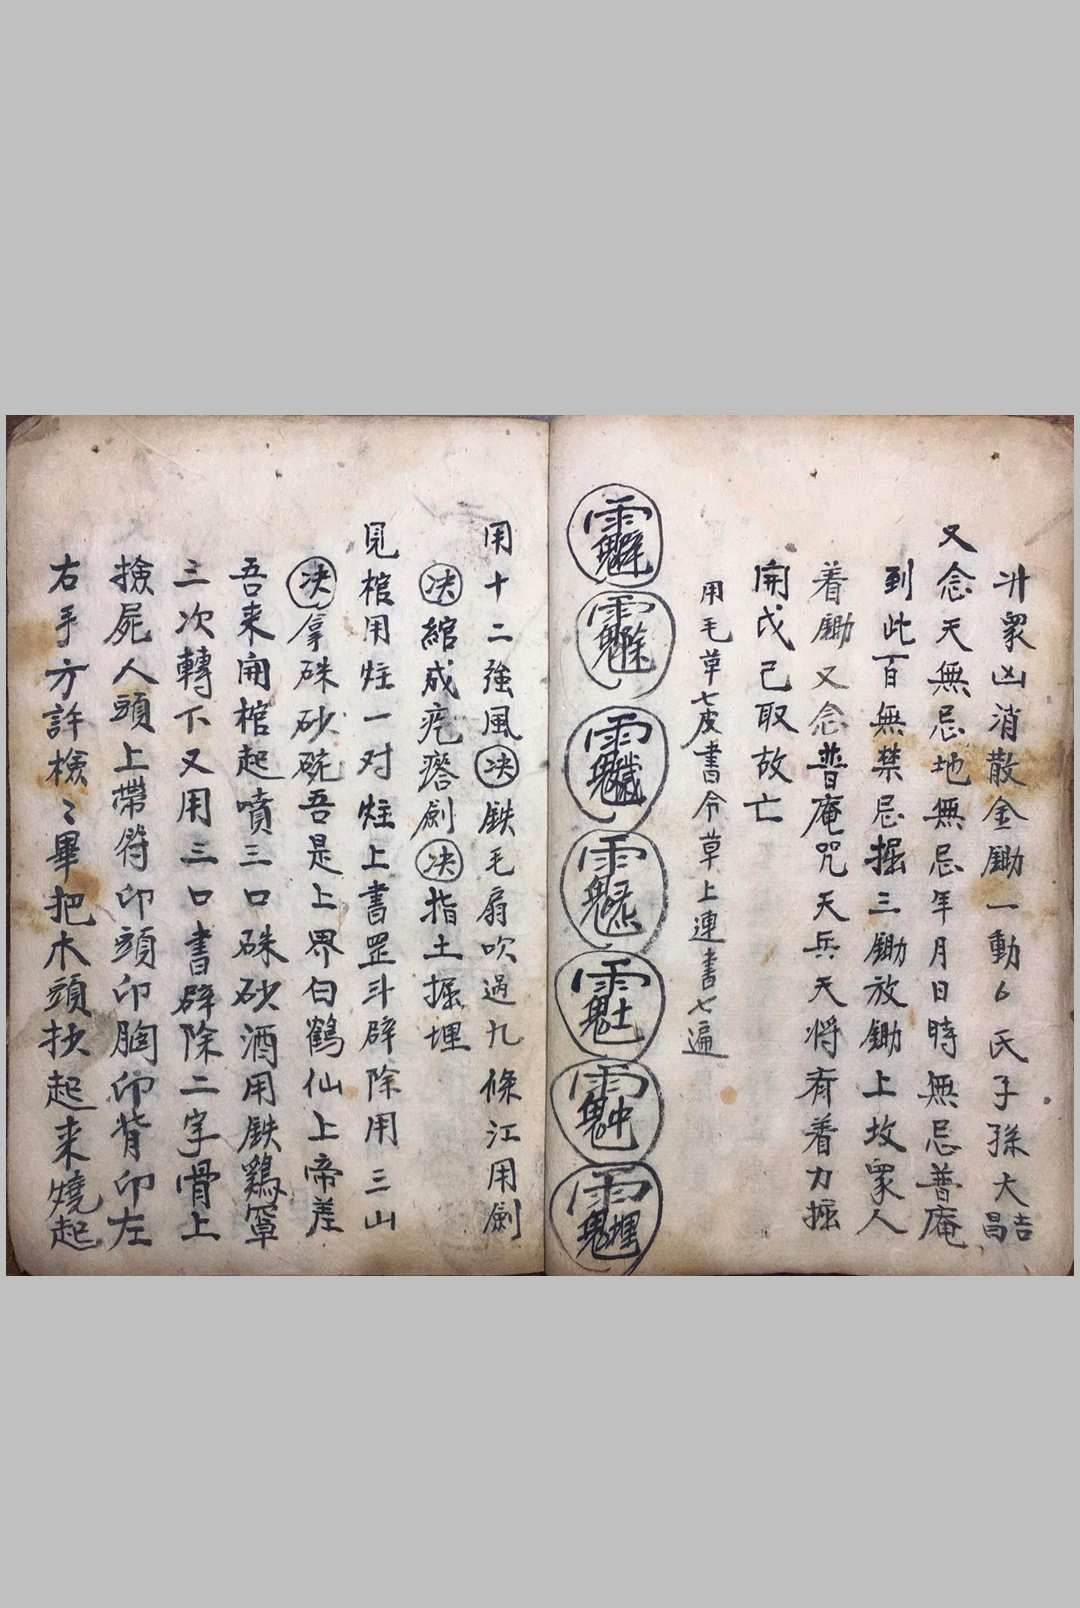 升眾凶消散金鋤一動厶氏子孫大吉昌
又念天無忌地無忌年月日時無忌普庵
到此百無禁忌掘三鋤放鋤上坟眾人
着鋤又念普庵咒天兵天将齐着力掘
開戊己取故亡
用毛草七皮書令草上連書七遍
用十二強風决鉄毛扇吹過九條江用劍
决綰成疙瘩劍决指土掘埋
見棺用炷一对炷上書罡斗辟除用三山
决拿硃砂碗吾是上界白鶴仙上帝差
吾来開棺起噴三口硃砂酒用鉄鷄罩
三次轉下又用三口書辟除二字骨上
撿屍人頭上帶符印頭印胸印背印左
右手方許檢〻畢把木頭扶起来燒起